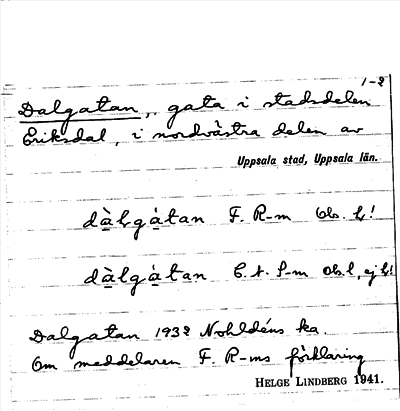 1-2
Dalgatan, gata i stadsdelen
Eriksdal, i nordvästra delen av
Uppsala stad, Uppsala län.
dàlgátan F. R-m Obs. l!
dàlgàtan C. A. P-m obs. l, ej l!
Dalgatan 1932 Nohldéns ka.
Om meddelaren F. R-ms förklaring
HELGE LINDBERG 1941.